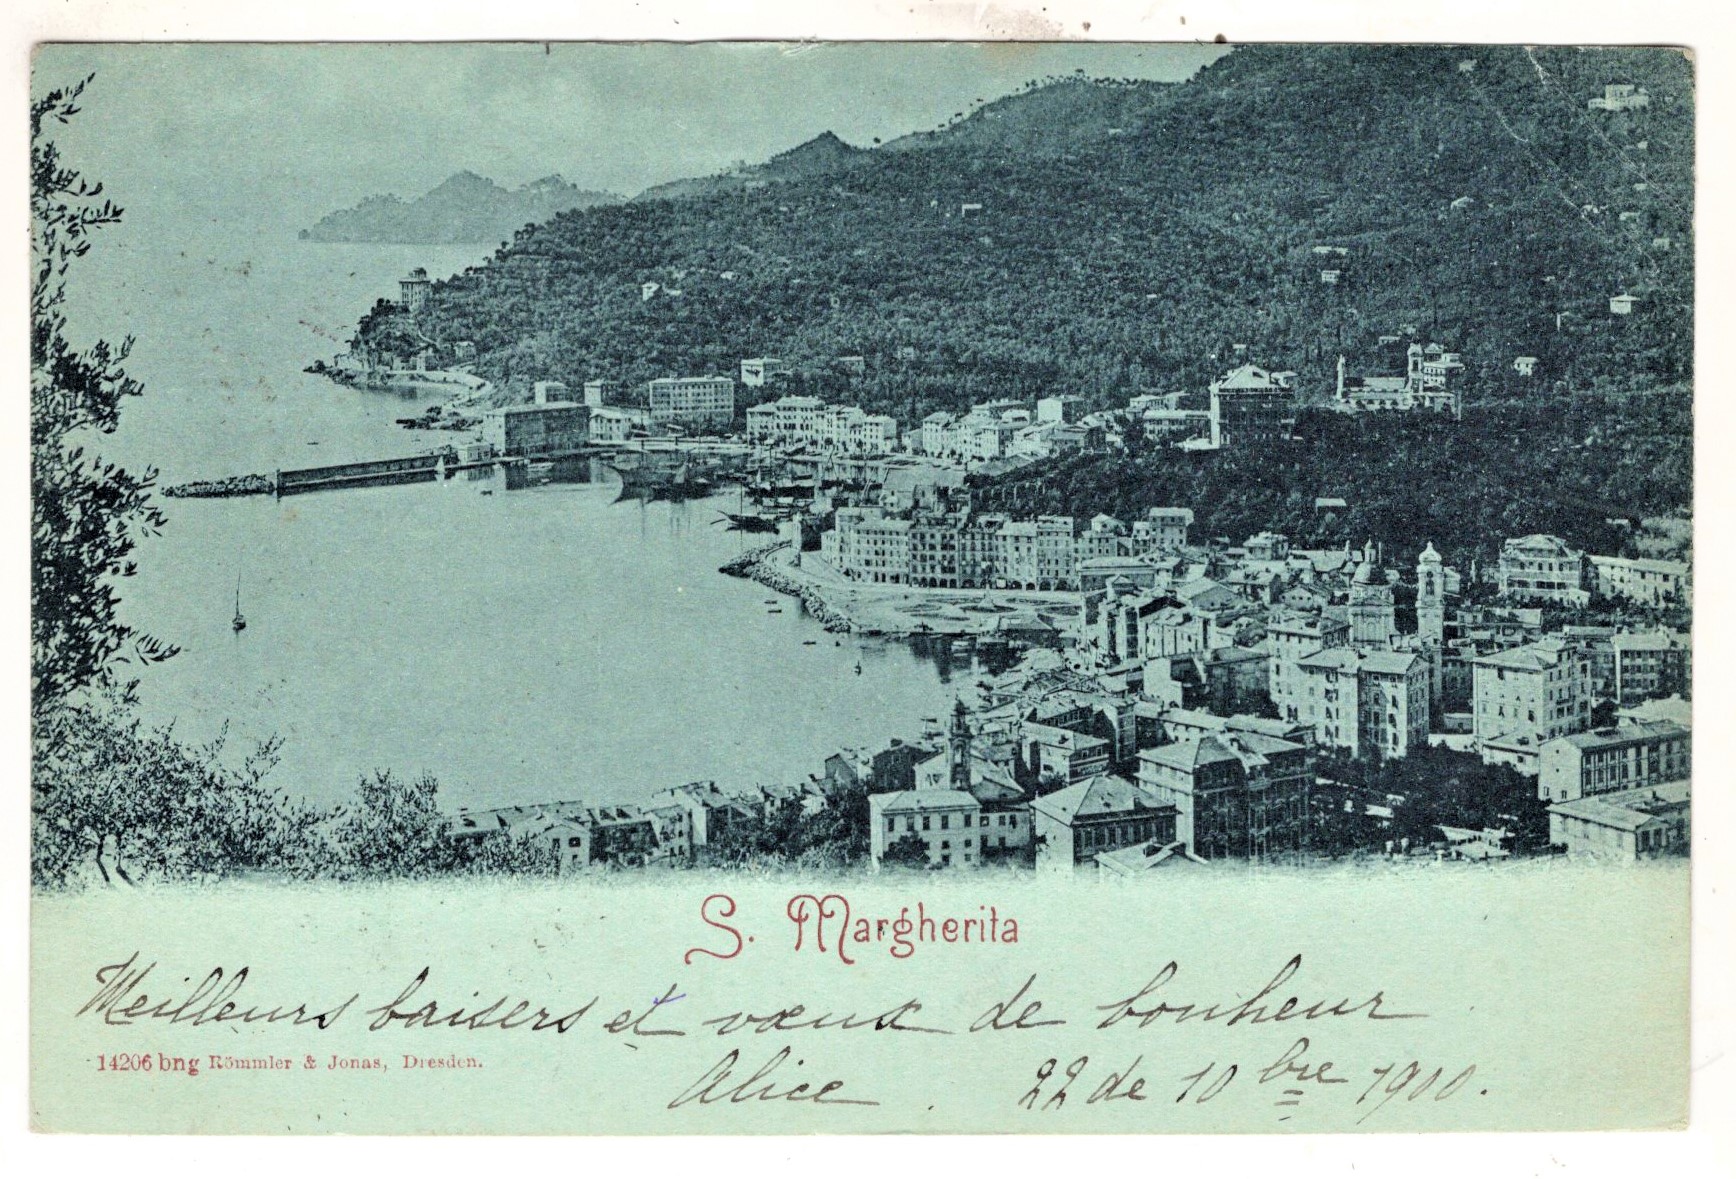 S. Margherita
Meilleurs baisers et vœux de bonheur
14206 bng Römmler & Jonas, Dresden.
Alice. 22 de 10 bre 1900.